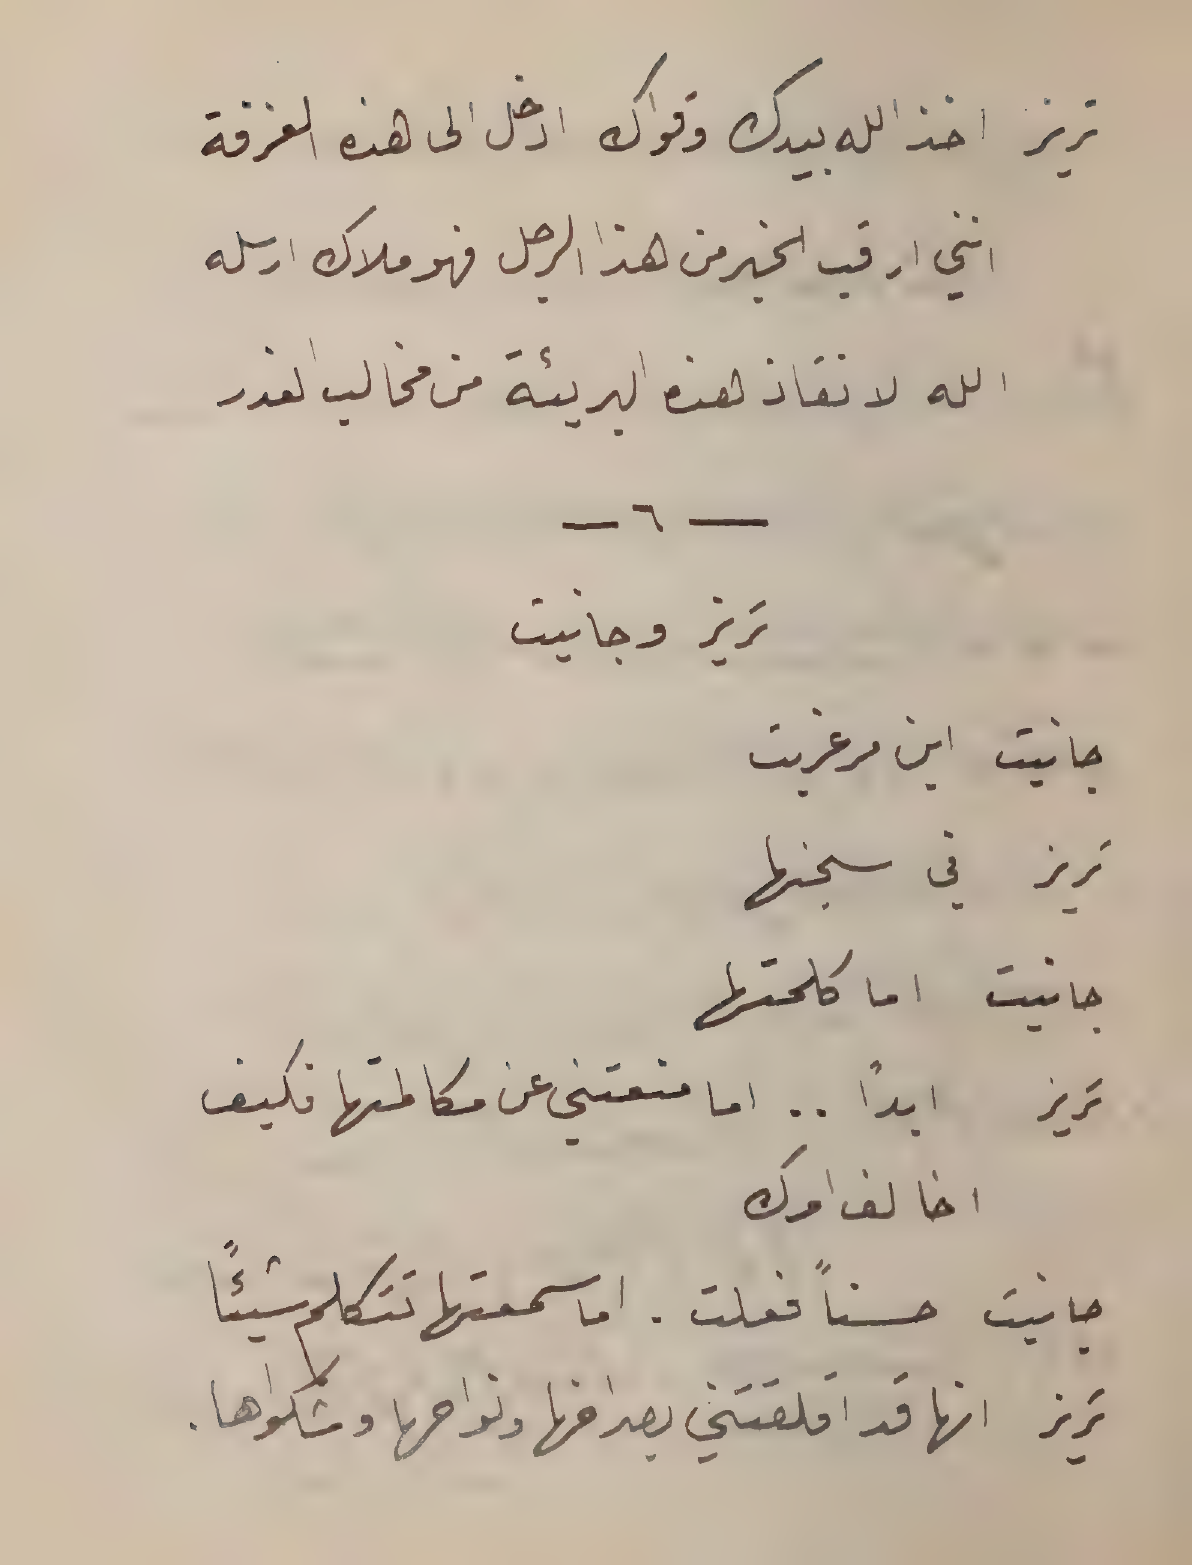 تريز اخذ الله بيدك وقواك ادخل الى هذه الغرفة
انني ارقب الخير من هذا الرجل فهو ملاك ارسله
الله لانقاذ هذه البريئة من مخالب الغدر
— ٦ —
تريز وجانيت
جانيت اين مرغريت
تريز في سجنها
جانيت اما كلمتها
تريز ابداً .. اما منعتني عن مكالمتها فكيف
اخالف امرك
جانيت حسناً فعلت . اما سمعتها تتكلم شيئاً
تريز انها قد اقلقتني بصراخها ونواحها وشكواها .